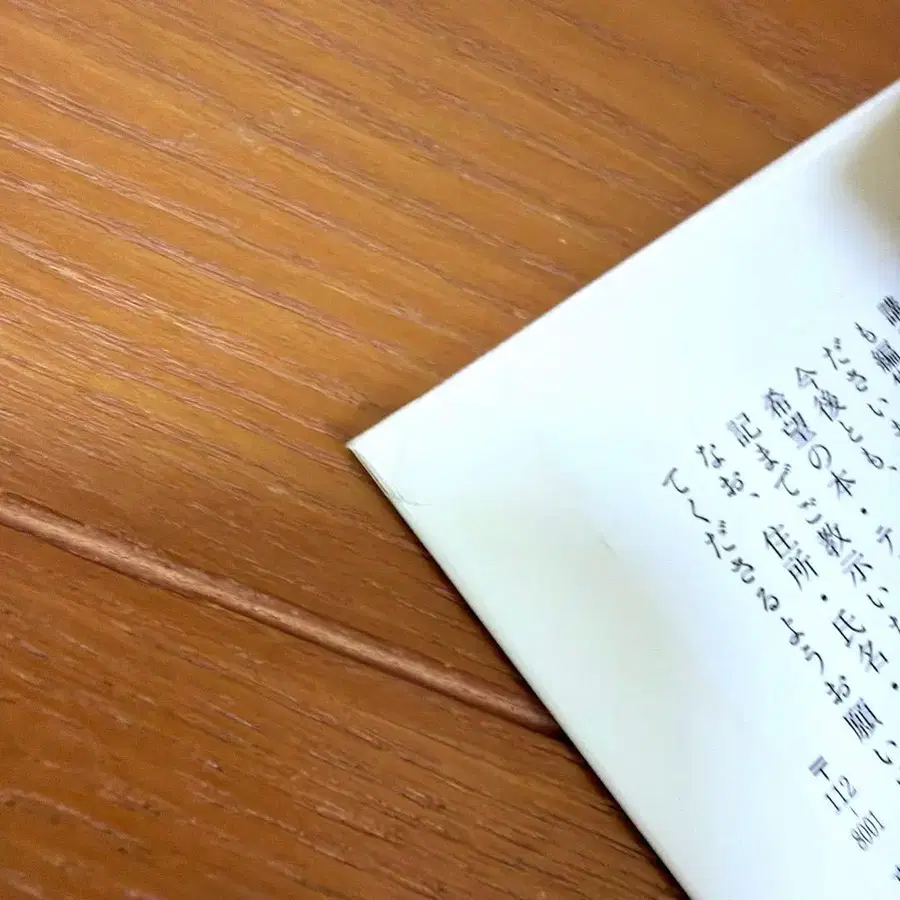 講
も編
ださい
今後とも、
希望の本・テ
記までご教示いた
なお、住所・氏名・
てくださるようお願い
〒112-8001